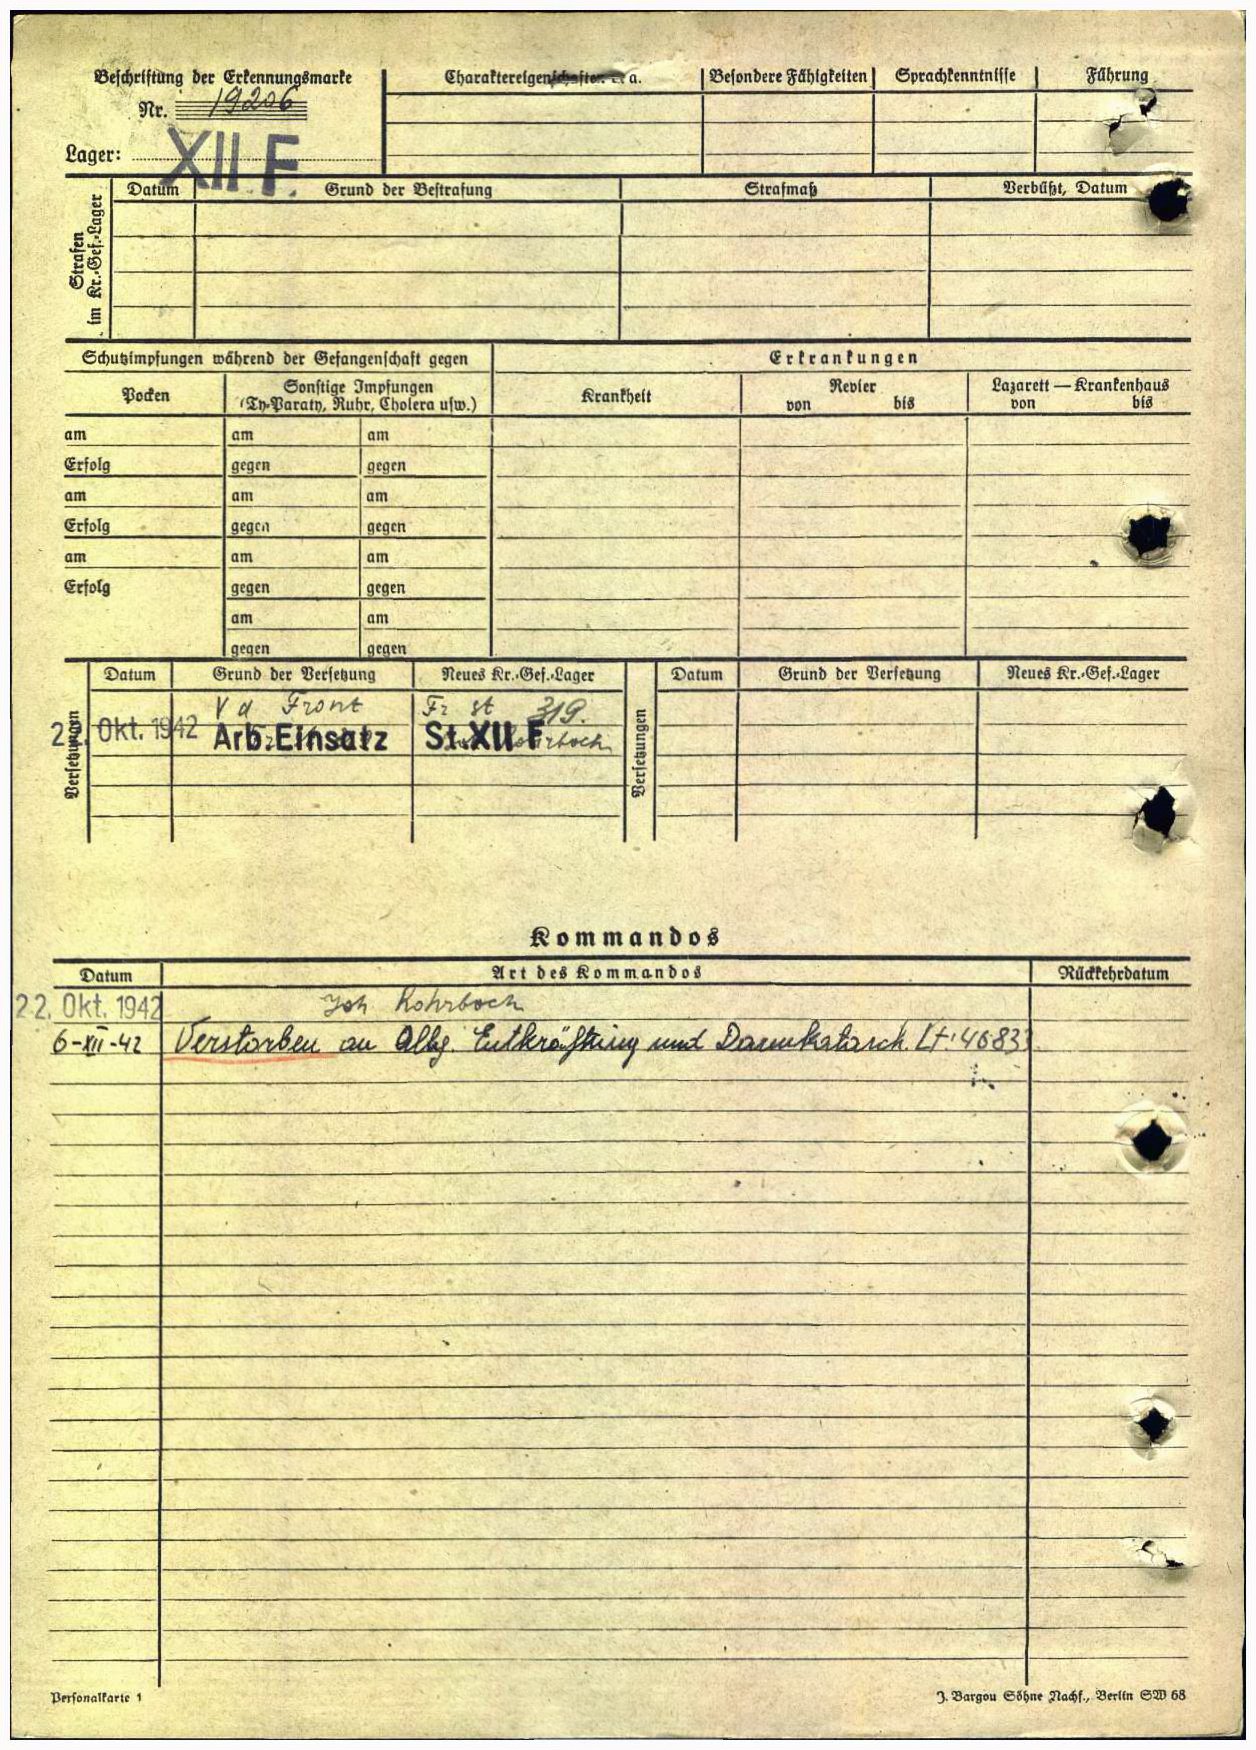 Beschriftung der Erkennungsmarke
Nr. 19206
Lager: XII F.
Charaktereigenschaften u. a.
Besondere Fähigkeiten
Sprachkenntnisse
Führung
Strafen im Kr.-Gef.-Lager
Datum
Grund der Bestrafung
Strafmaß
Verbüßt, Datum
Schutzimpfungen während der Gefangenschaft gegen
Erkrankungen
Pocken
Sonstige Impfungen
(Ty-Paraty, Ruhr, Cholera usw.)
Krankheit
Revier
von bis
Lazarett — Krankenhaus
von bis
am am am
Erfolg gegen gegen
am am am
Erfolg gegen gegen
am am am
Erfolg gegen gegen
am am
gegen gegen
Versetzungen
Datum Grund der Versetzung Neues Kr.-Gef.-Lager
V d Front Fr st 319.
Okt. 1942 Arb.Einsatz St.XII F
Versetzungen
Datum Grund der Versetzung Neues Kr.-Gef.-Lager
Kommandos
Datum Art des Kommandos Rückkehrdatum
22. Okt. 1942 Joh Rohrboch
6-XII-42 Verstorben an Allg. Entkräftung und Darmkatarrh. Lt: 4683
Personalkarte 1
J. Bargou Söhne Nachf., Berlin SW 68